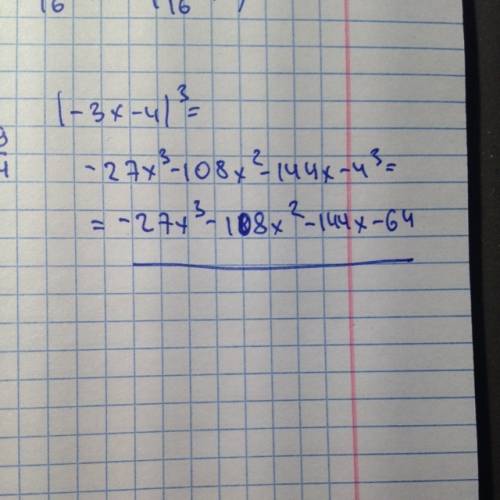 16 116
(-3x-4)³=
3
4
-27x³-108x²-144x-4³=
= -27x³-108x²-144x-64